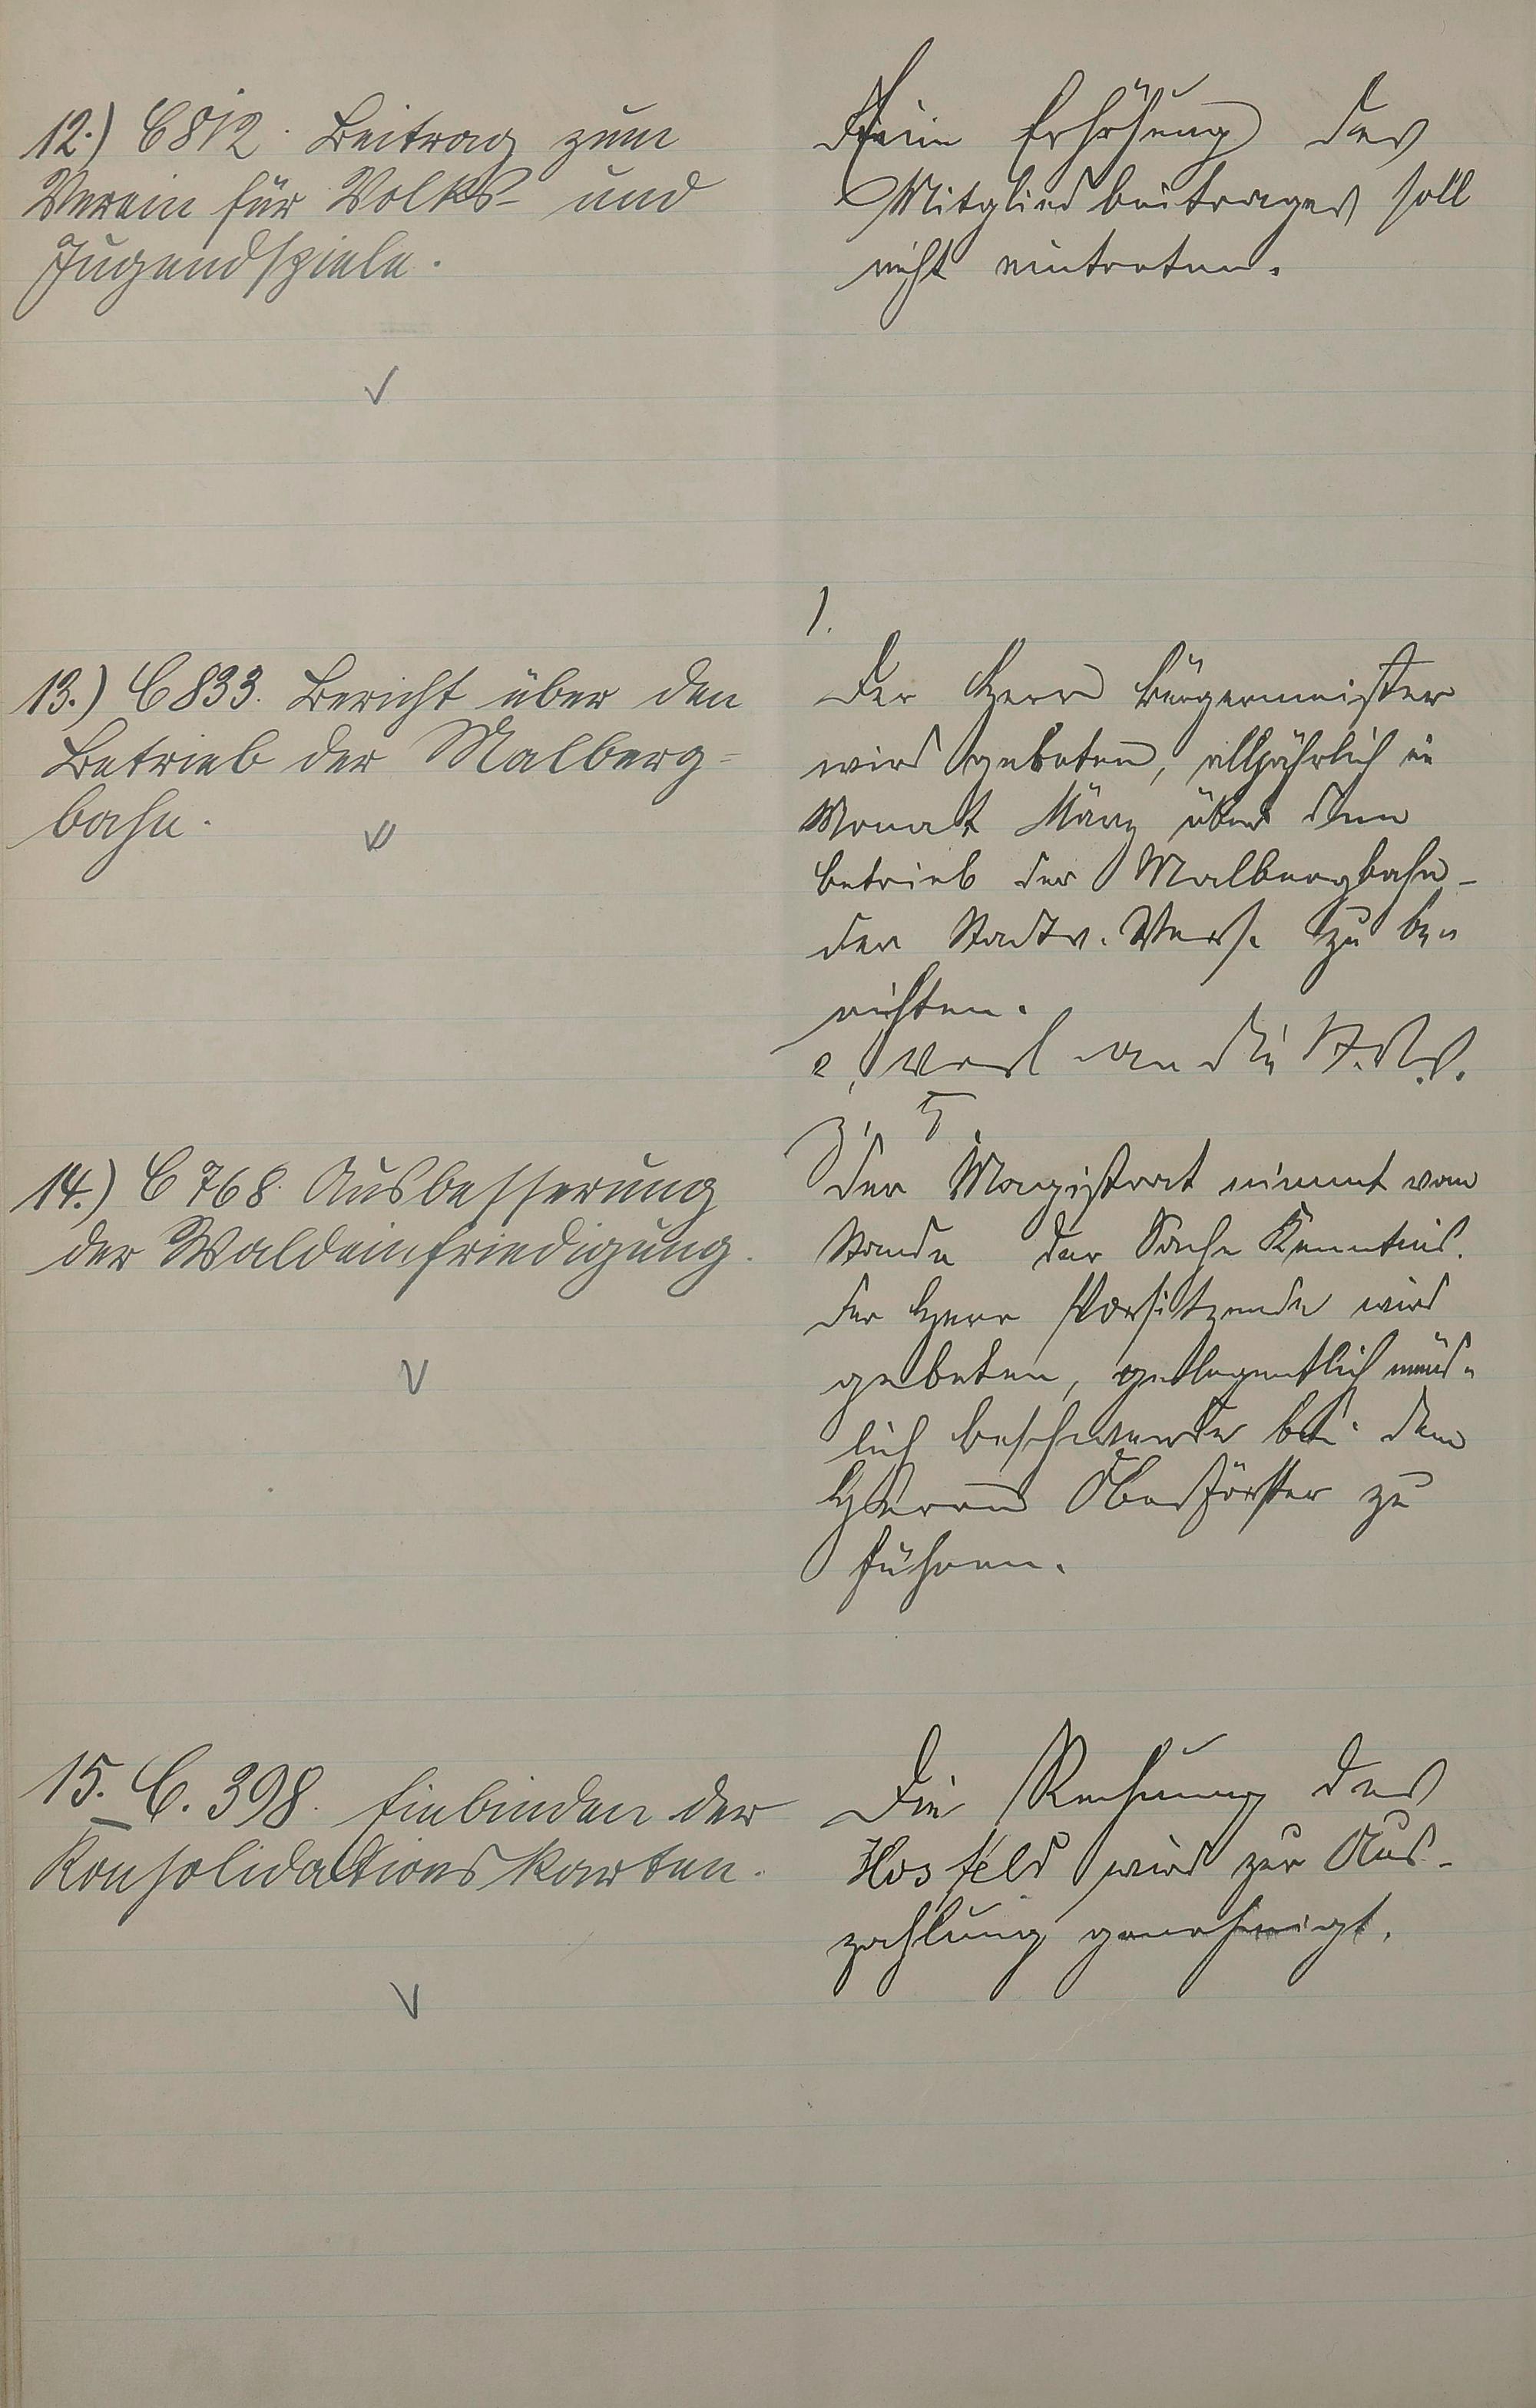 12.) C 812. Beitrag zum
Verein für Volks- und
Jugendspiele.
Eine Erhöhung des
Mitgliedbeitrages soll
nicht eintreten.
13.) C 833. Bericht über den
Betrieb der Malberg-
bahn.
1.
Der Herr Bürgermeister
wird gebeten, alljährlich im
Monat März über den
Betrieb der Malbergbahn
der Stadtv. Vers. zu be-
richten.
2, an die
3,
14.) C 768. Ausbesserung
der Waldeinfriedigung.
Der Magistrat nimmt vom
Stande der Sache Kenntnis.
Der Herr Vorsitzende wird
gebeten, gelegentlich münd-
lich Beschwerde bei dem
Herrn Oberförster zu
führen.
15. C. 398. Einbinden der
Konsolidationskarten.
Die Rechnung des
Hosfeld wird zur Aus-
zahlung genehmigt.